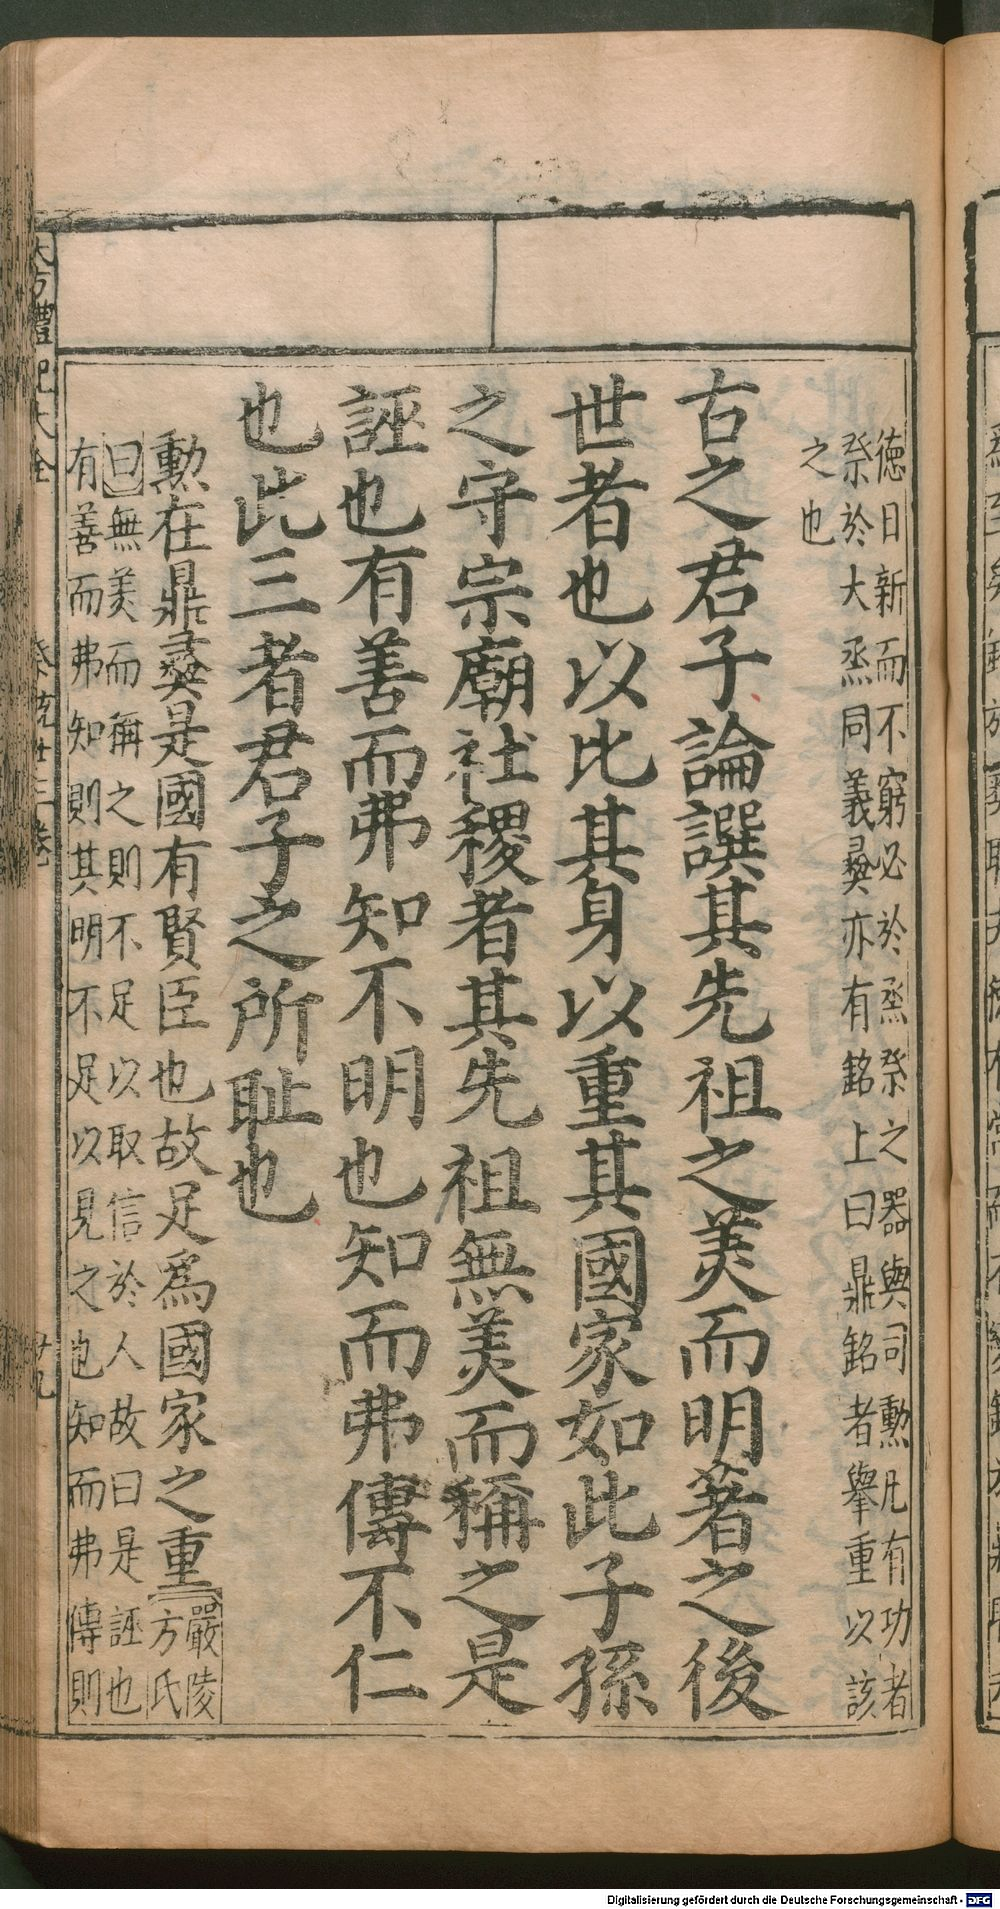 德日新而不窮必於烝祭之器與司勲凡有功者
祭於大烝同義彛亦有銘上曰鼎銘者舉重以該
之也
古之君子論譔其先祖之美而明著之後
世者也以比其身以重其國家如此子孫
之守宗廟社稷者其先祖無美而稱之是
誣也有善而弗知不明也知而弗傳不仁
也此三者君子之所耻也
勲在鼎彛是國有賢臣也故足爲國家之重
嚴陵
方氏
曰無美而稱之則不足以取信於人故曰是誣也
有善而弗知則其明不足以見之也知而弗傳則
大方禮記大全
祭統廿三卷
廿九
Digitalisierung gefördert durch die Deutsche Forschungsgemeinschaft - DFG